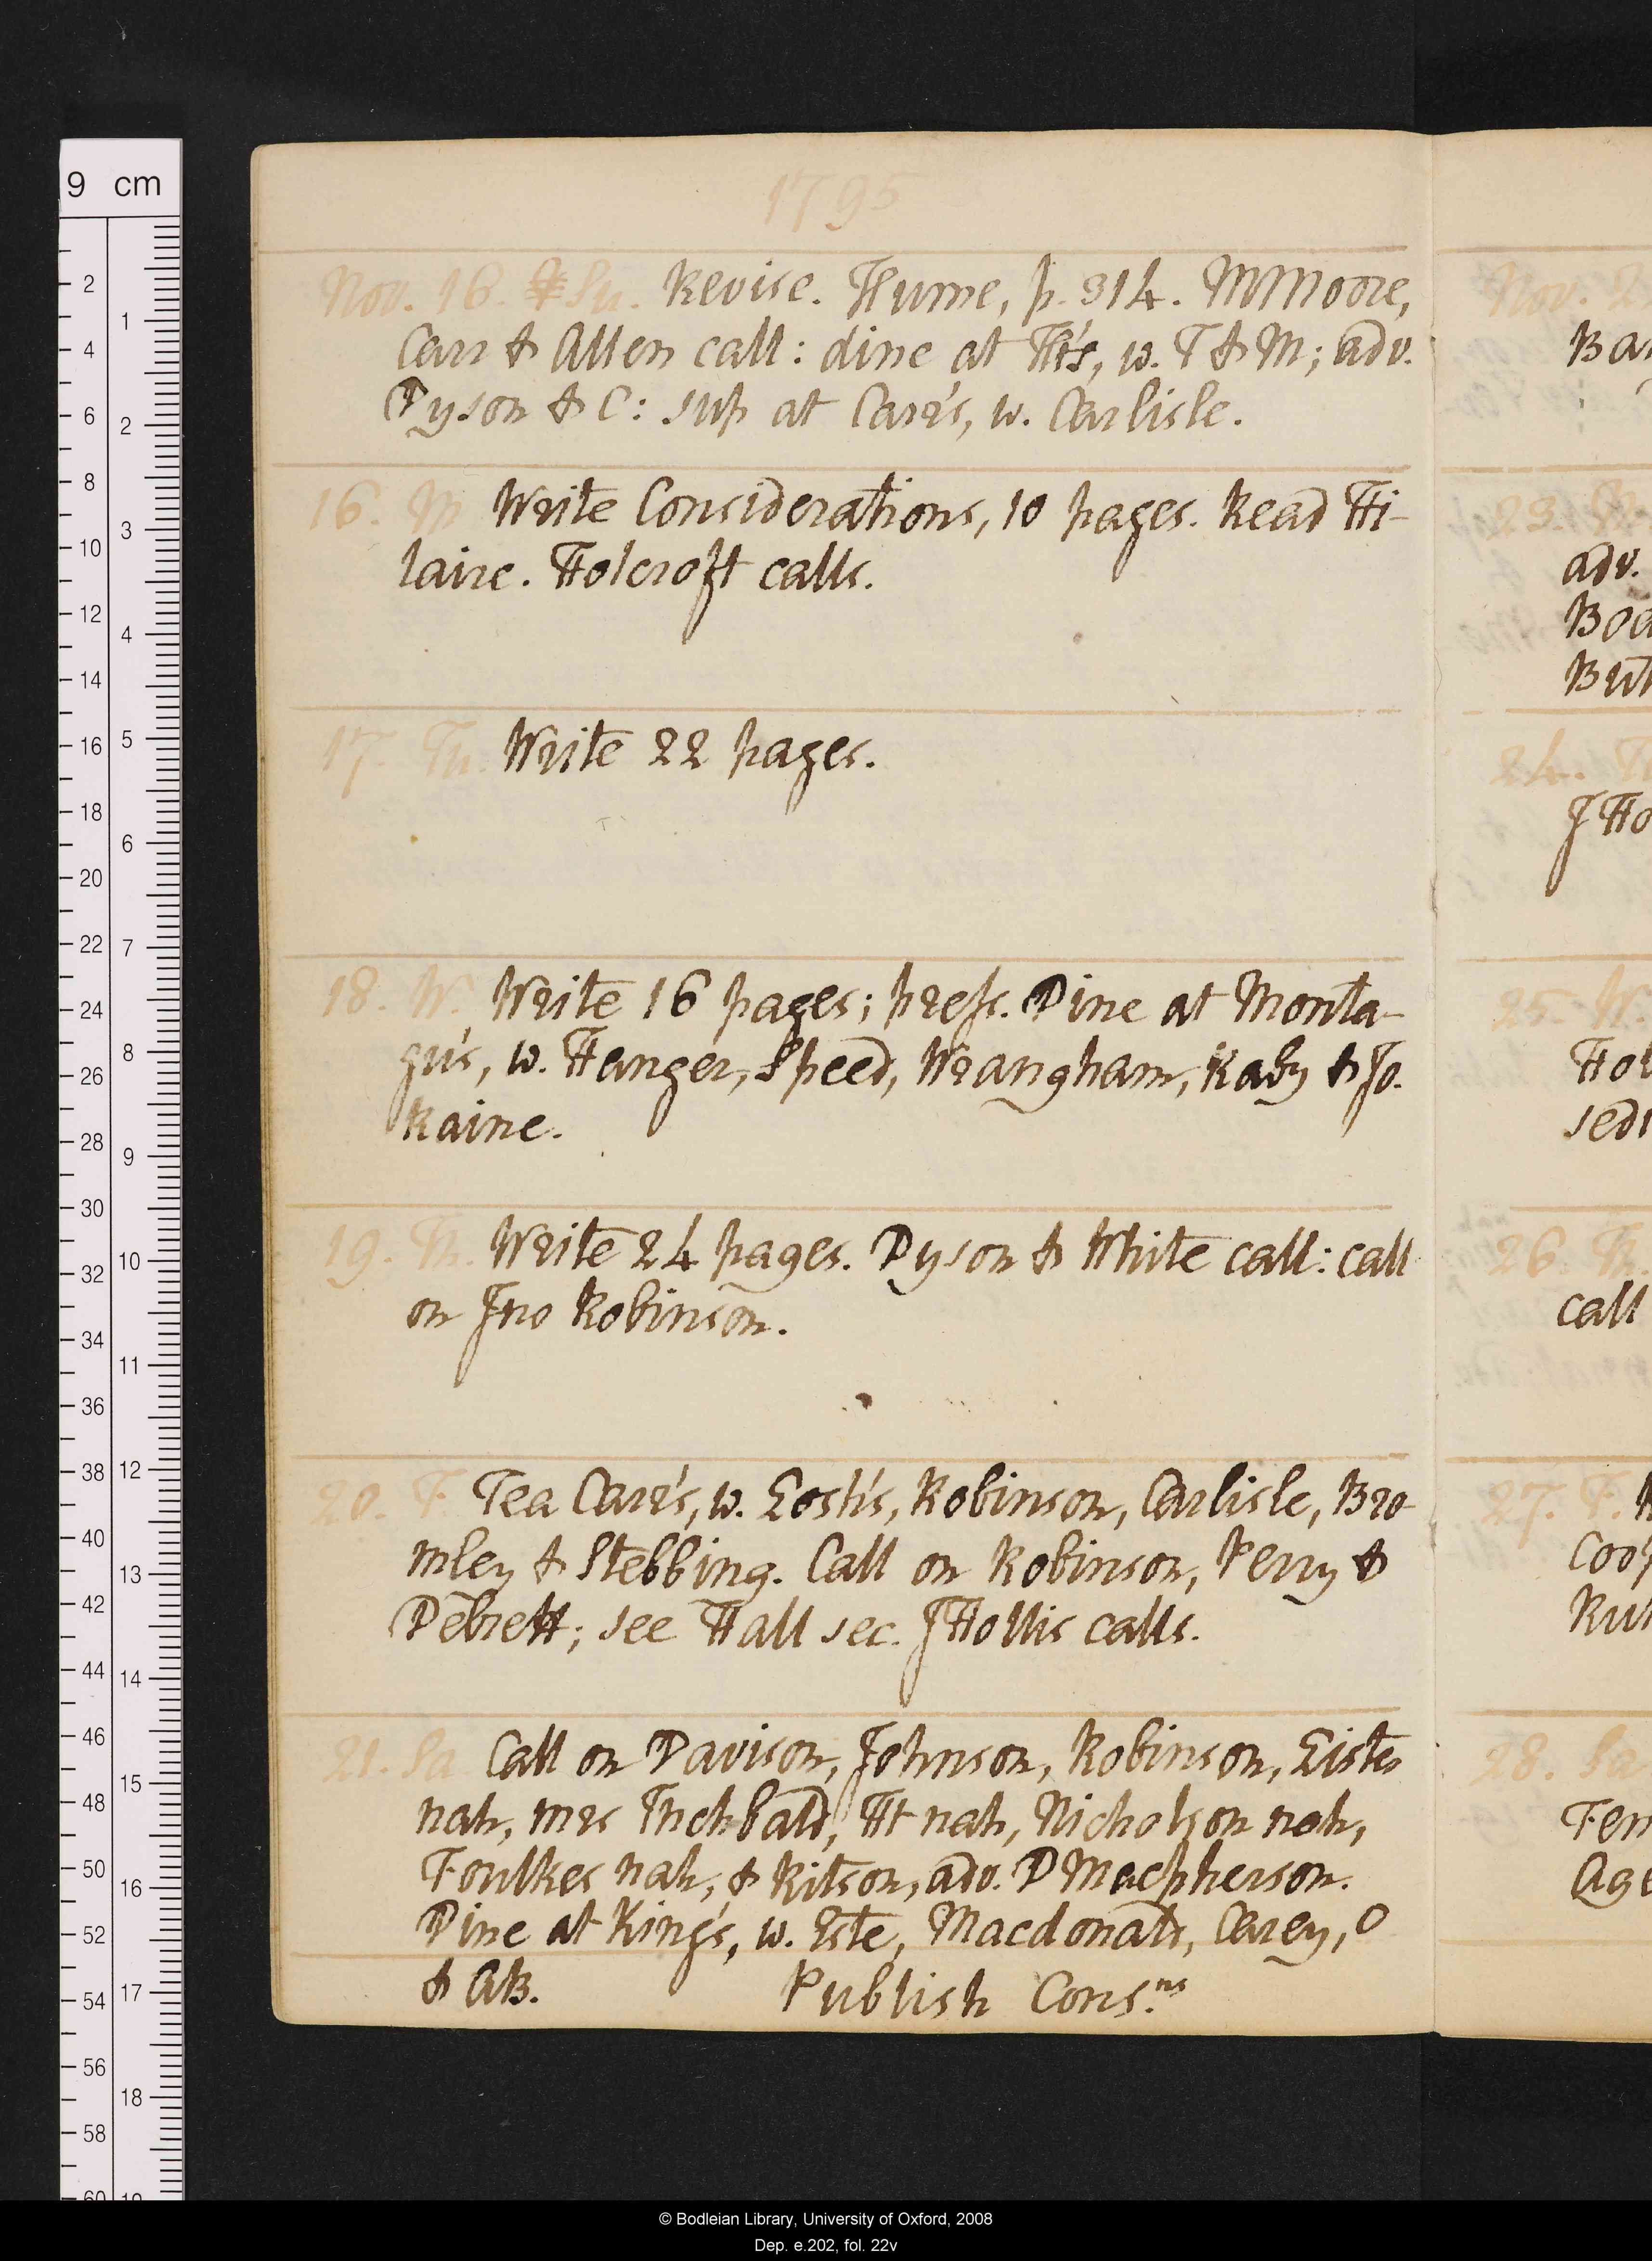 1795
Nov. 15. Su. Revise. Hume, p. 314. MMoore,
Carr & Allen call: dine at Ht's, w. T & M; adv.
Dyson & C: sup at Carr's, w. Carlisle.
16. M Write Considerations, 10 pages. Read Hi-
laire. Holcroft calls.
17. Tu. Write 22 pages.
18. W. Write 16 pages; press. Dine at Monta-
gu's, w. Hanger, Speed, Wrangham, Raby & Jo.
Raine.
19. Th. Write 24 pages. Dyson & White call: call
on Jno Robinson.
20. F. Tea Carr's, w. Losh's, Robinson, Carlisle, Bro-
mley & Stebbing. Call on Robinson, Perry &
Debrett; see Hall sec. JHollis calls.
21. Sa Call on Davison, Johnson, Robinson, Lister
nah, mrs Inchbald, Ht nah, Nicholson nah,
Foulkes nah, & Ritson, adv. D Macpherson.
Dine at King's, w. Este, Macdonald, Carey, O
& AB. Publish Cons.ns
Nov. 2
Ba
23. M.
adv.
Boa
But
24. T
J Ho
25. W.
Hol
sed
26. Th.
call
27. F.
Coop
Ru
28. Sa
Fen
Age
9 cm
2
4
6
8
10
12
14
16
18
20
22
24
26
28
30
32
34
36
38
40
42
44
46
48
50
52
54
56
58
60
1
2
3
4
5
6
7
8
9
10
11
12
13
14
15
16
17
18
19
© Bodleian Library, University of Oxford, 2008
Dep. e.202, fol. 22v